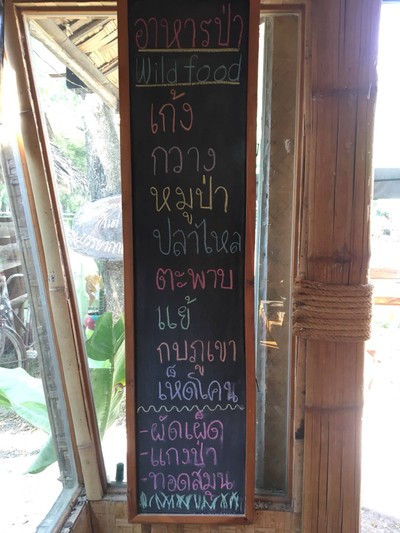 อาหารป่า
Wild food
เก้ง
กวาง
หมูป่า
ปลาไหล
ตะพาบ
แย้
กบภูเขา
เห็ดโคน
-ผัดเผ็ด
-แกงป่า
-ทอดสมุน